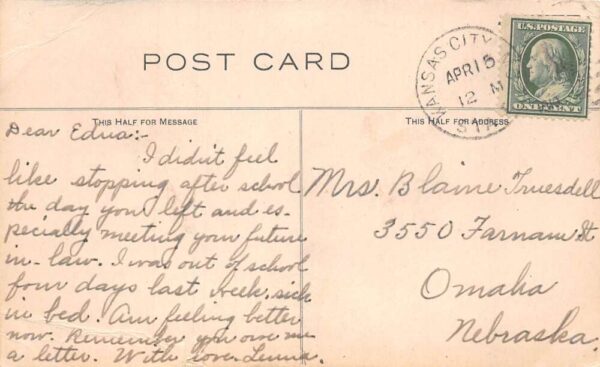 POST CARD
KANSAS CITY
APR 15
12 M
STA
U.S. POSTAGE
ONE CENT
THIS HALF FOR MESSAGE
Dear Edna:-
I didn't feel
like stopping after school
the day you left and es-
pecially meeting your future
in-law. I was out of school
four days last week, sick
in bed. Am feeling better
now. Remember you owe me
a letter. With love
THIS HALF FOR ADDRESS
Mrs. Blaine Truesdell
3550 Farnam St
Omaha
Nebraska.